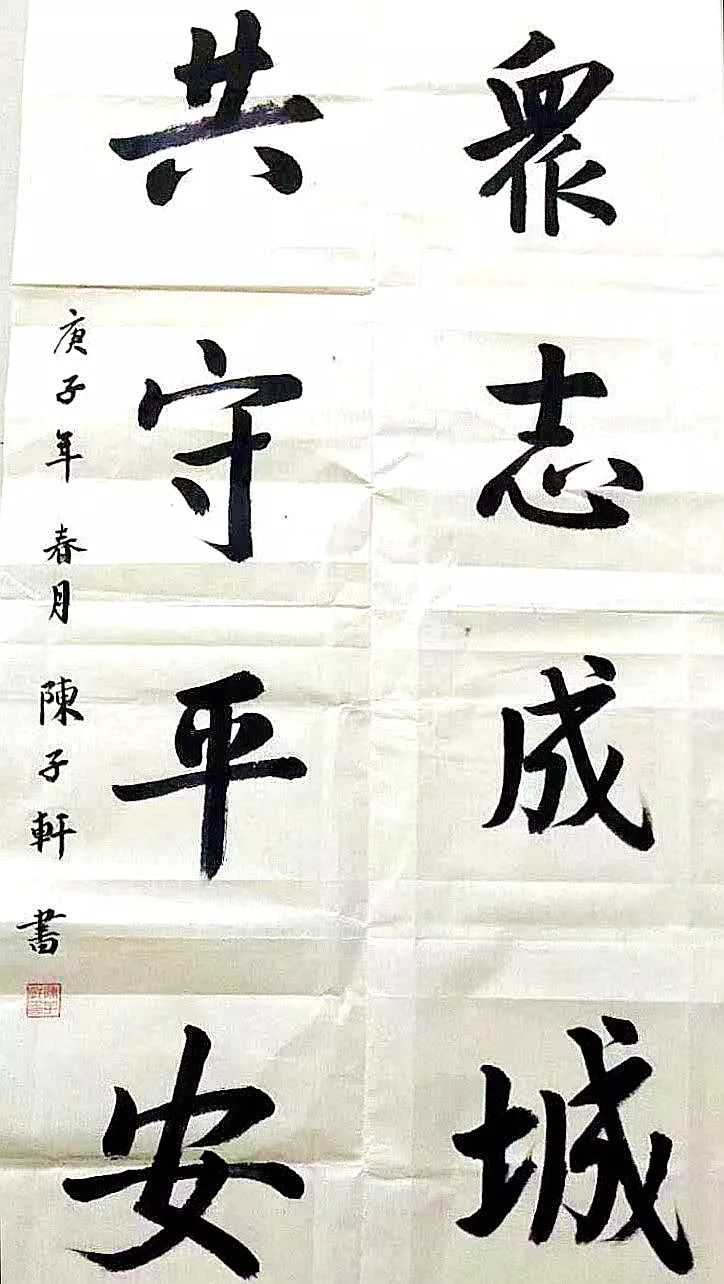 衆志成城
共守平安
庚子年春月陳子軒書